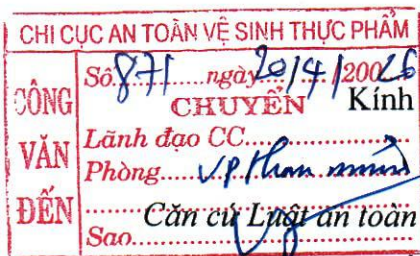 CHI CỤC AN TOÀN VỆ SINH THỰC PHẨM
CÔNG VĂN ĐẾN
Số 871 ngày 20/4/2026
CHUYỂN Kính
Lãnh đạo CC
Phòng VP
Căn cứ Luật an toàn
Sao